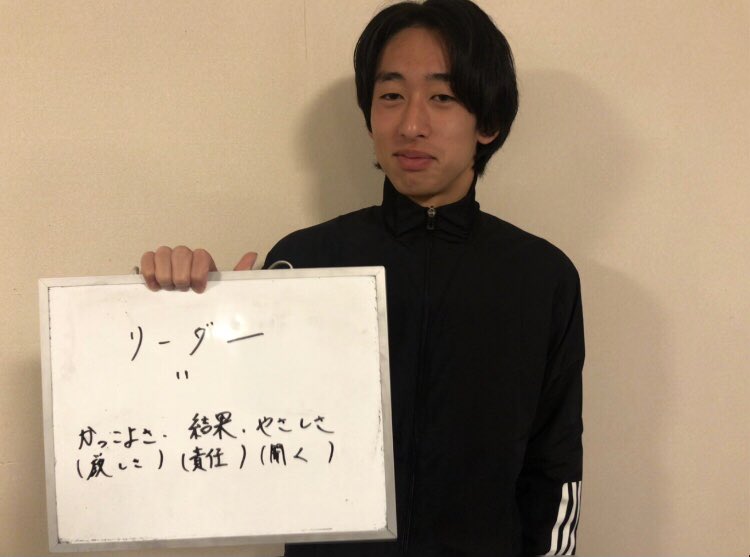 リーダー
"
かっこよさ、結果、やさしさ
(厳しさ)(責任)(聞く)